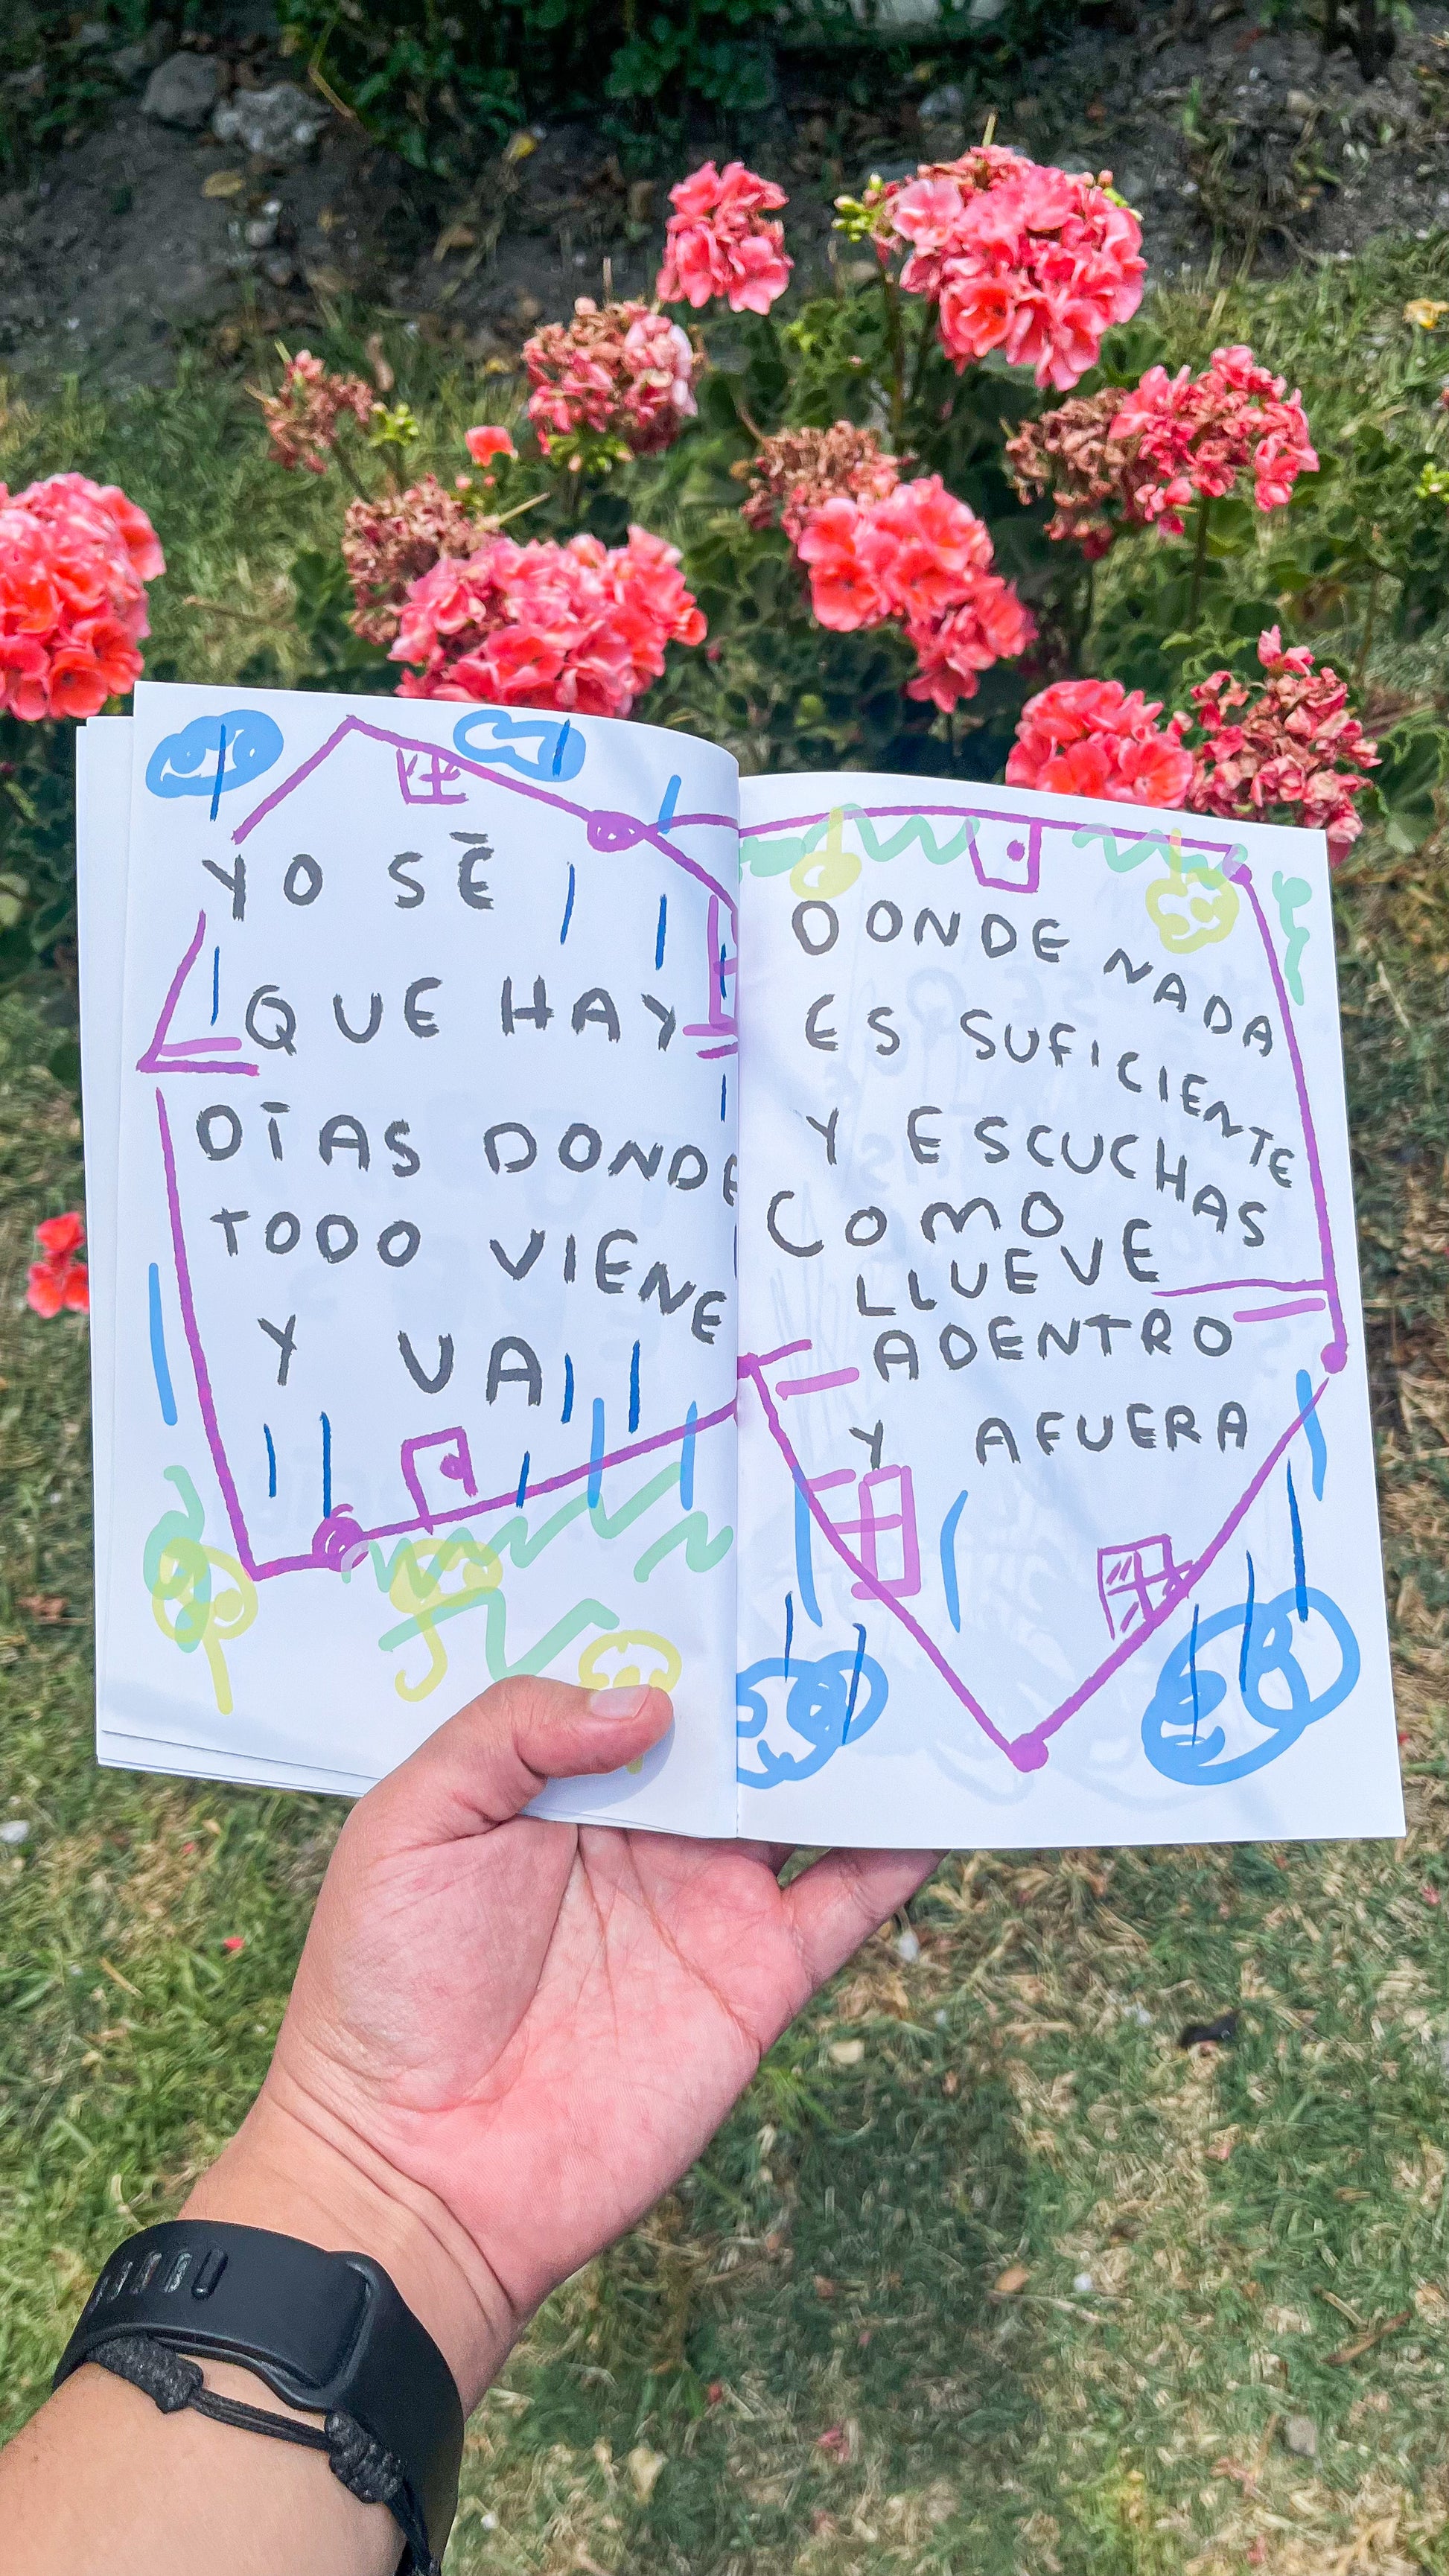 YO SÉ
QUE HAY
DÍAS DONDE
TODO VIENE
Y VA
DONDE NADA
ES SUFICIENTE
Y ESCUCHAS
COMO
LLUEVE
ADENTRO
Y AFUERA